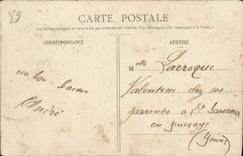 89
CARTE POSTALE
La Correspondance au recto n'est pas acceptée par tous les Pays Étrangers. (Se renseigner à la Poste.)
CORRESPONDANCE
ADRESSE
un bon baiser
André
Mlle Larroque
Valentine chez ses
parents à St Sauveur
en puisaye
(Yonne)